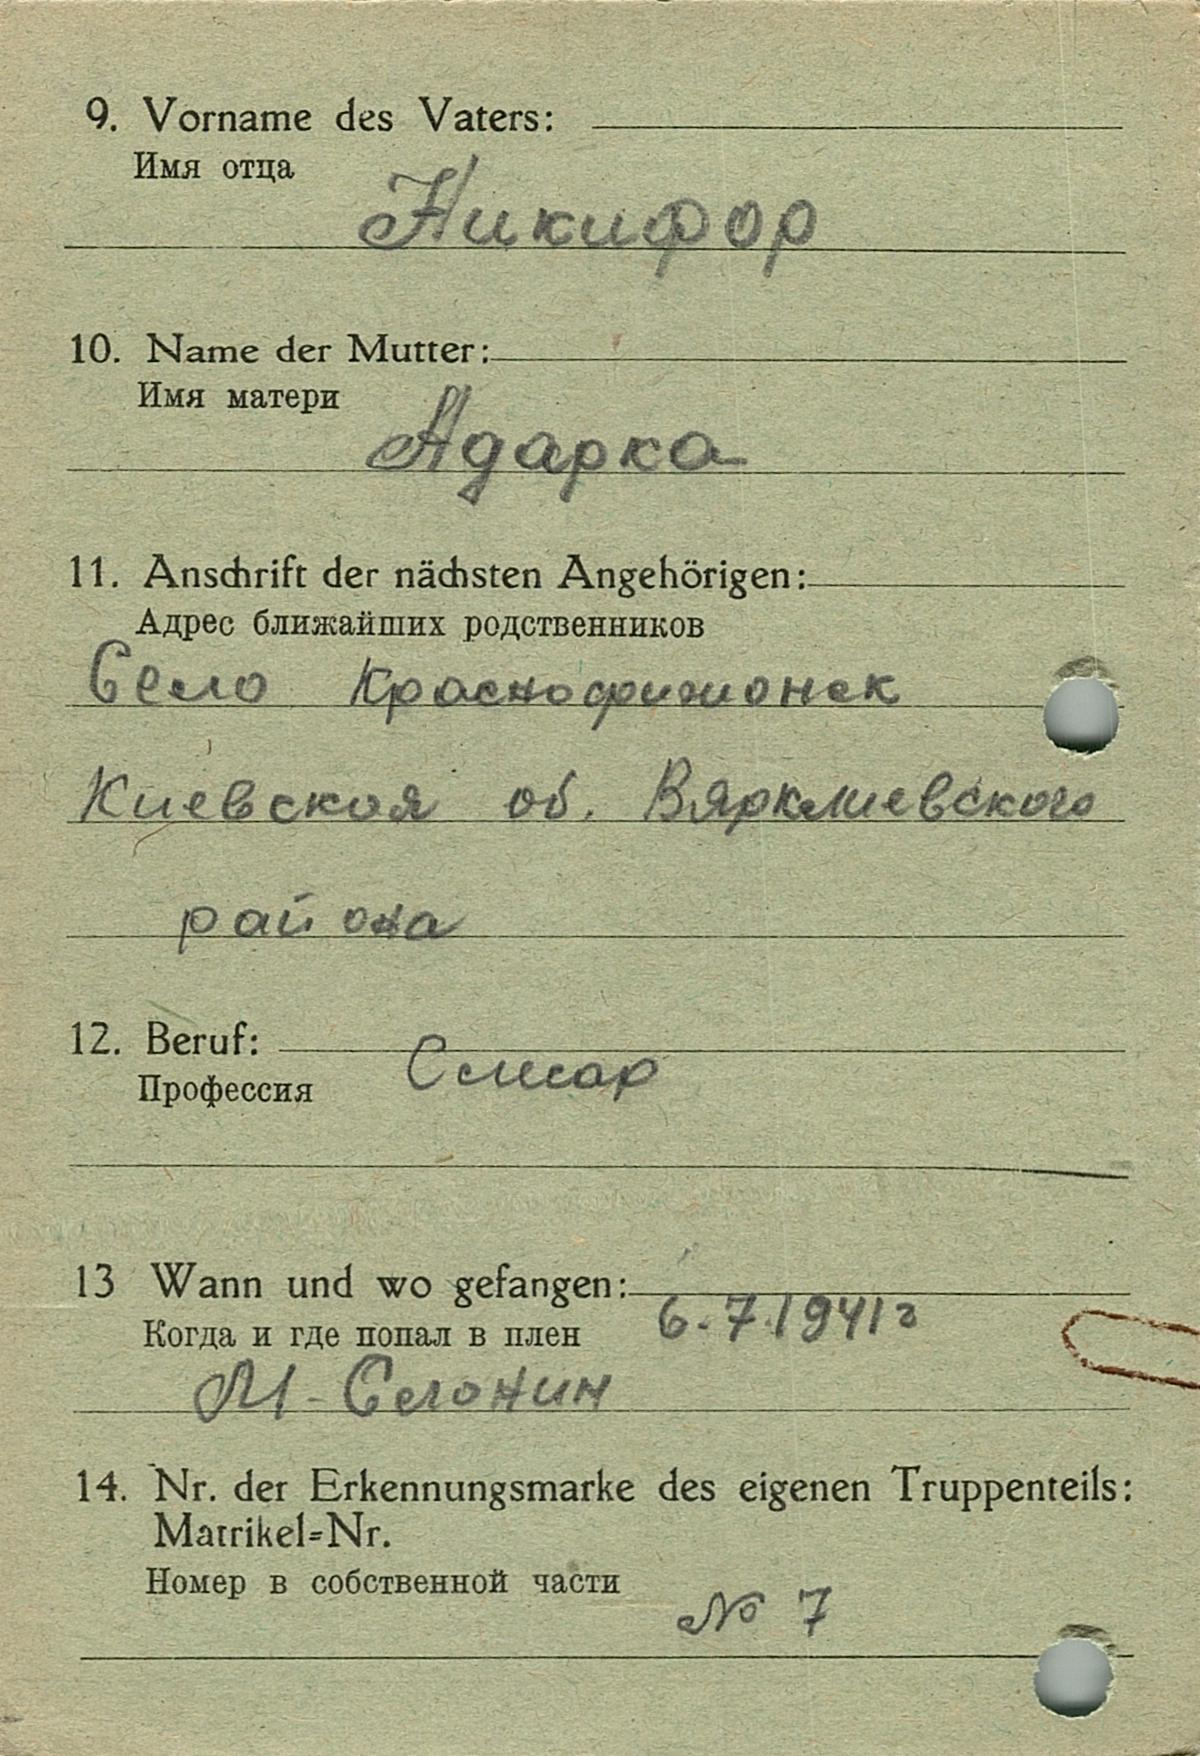 9. Vorname des Vaters:
Имя отца
Никифор
10. Name der Mutter:
Имя матери
Адарка
11. Anschrift der nächsten Angehörigen:
Адрес ближайших родственников
Село
Киевская об.
района
12. Beruf:
Профессия
Слисар
13 Wann und wo gefangen:
Когда и где попал в плен
6.7.1941г
М-Селонин
14. Nr. der Erkennungsmarke des eigenen Truppenteils:
Matrikel=Nr.
Номер в собственной части
№ 7